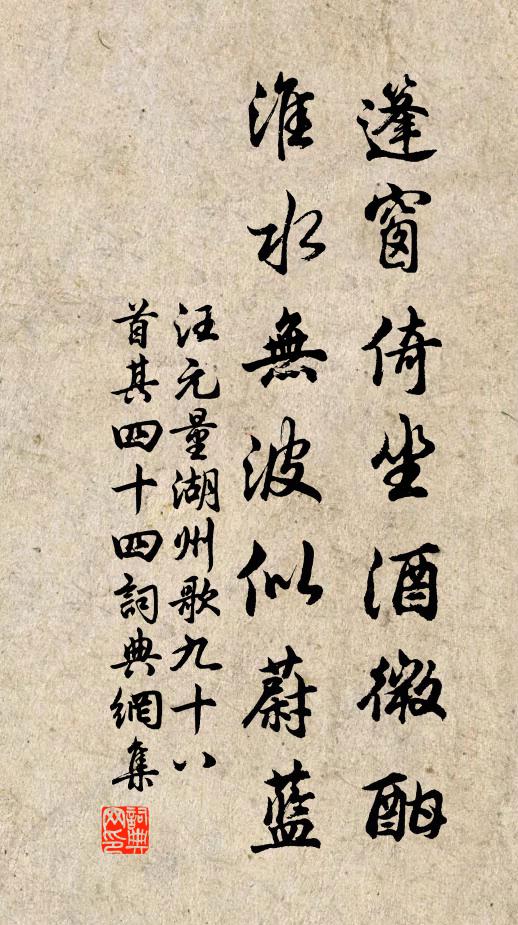 蓬窗倚坐酒微酣
淮水無波似蔚藍
汪元量湖州歌九十八
首其四十四詞典網集
詞典
网印